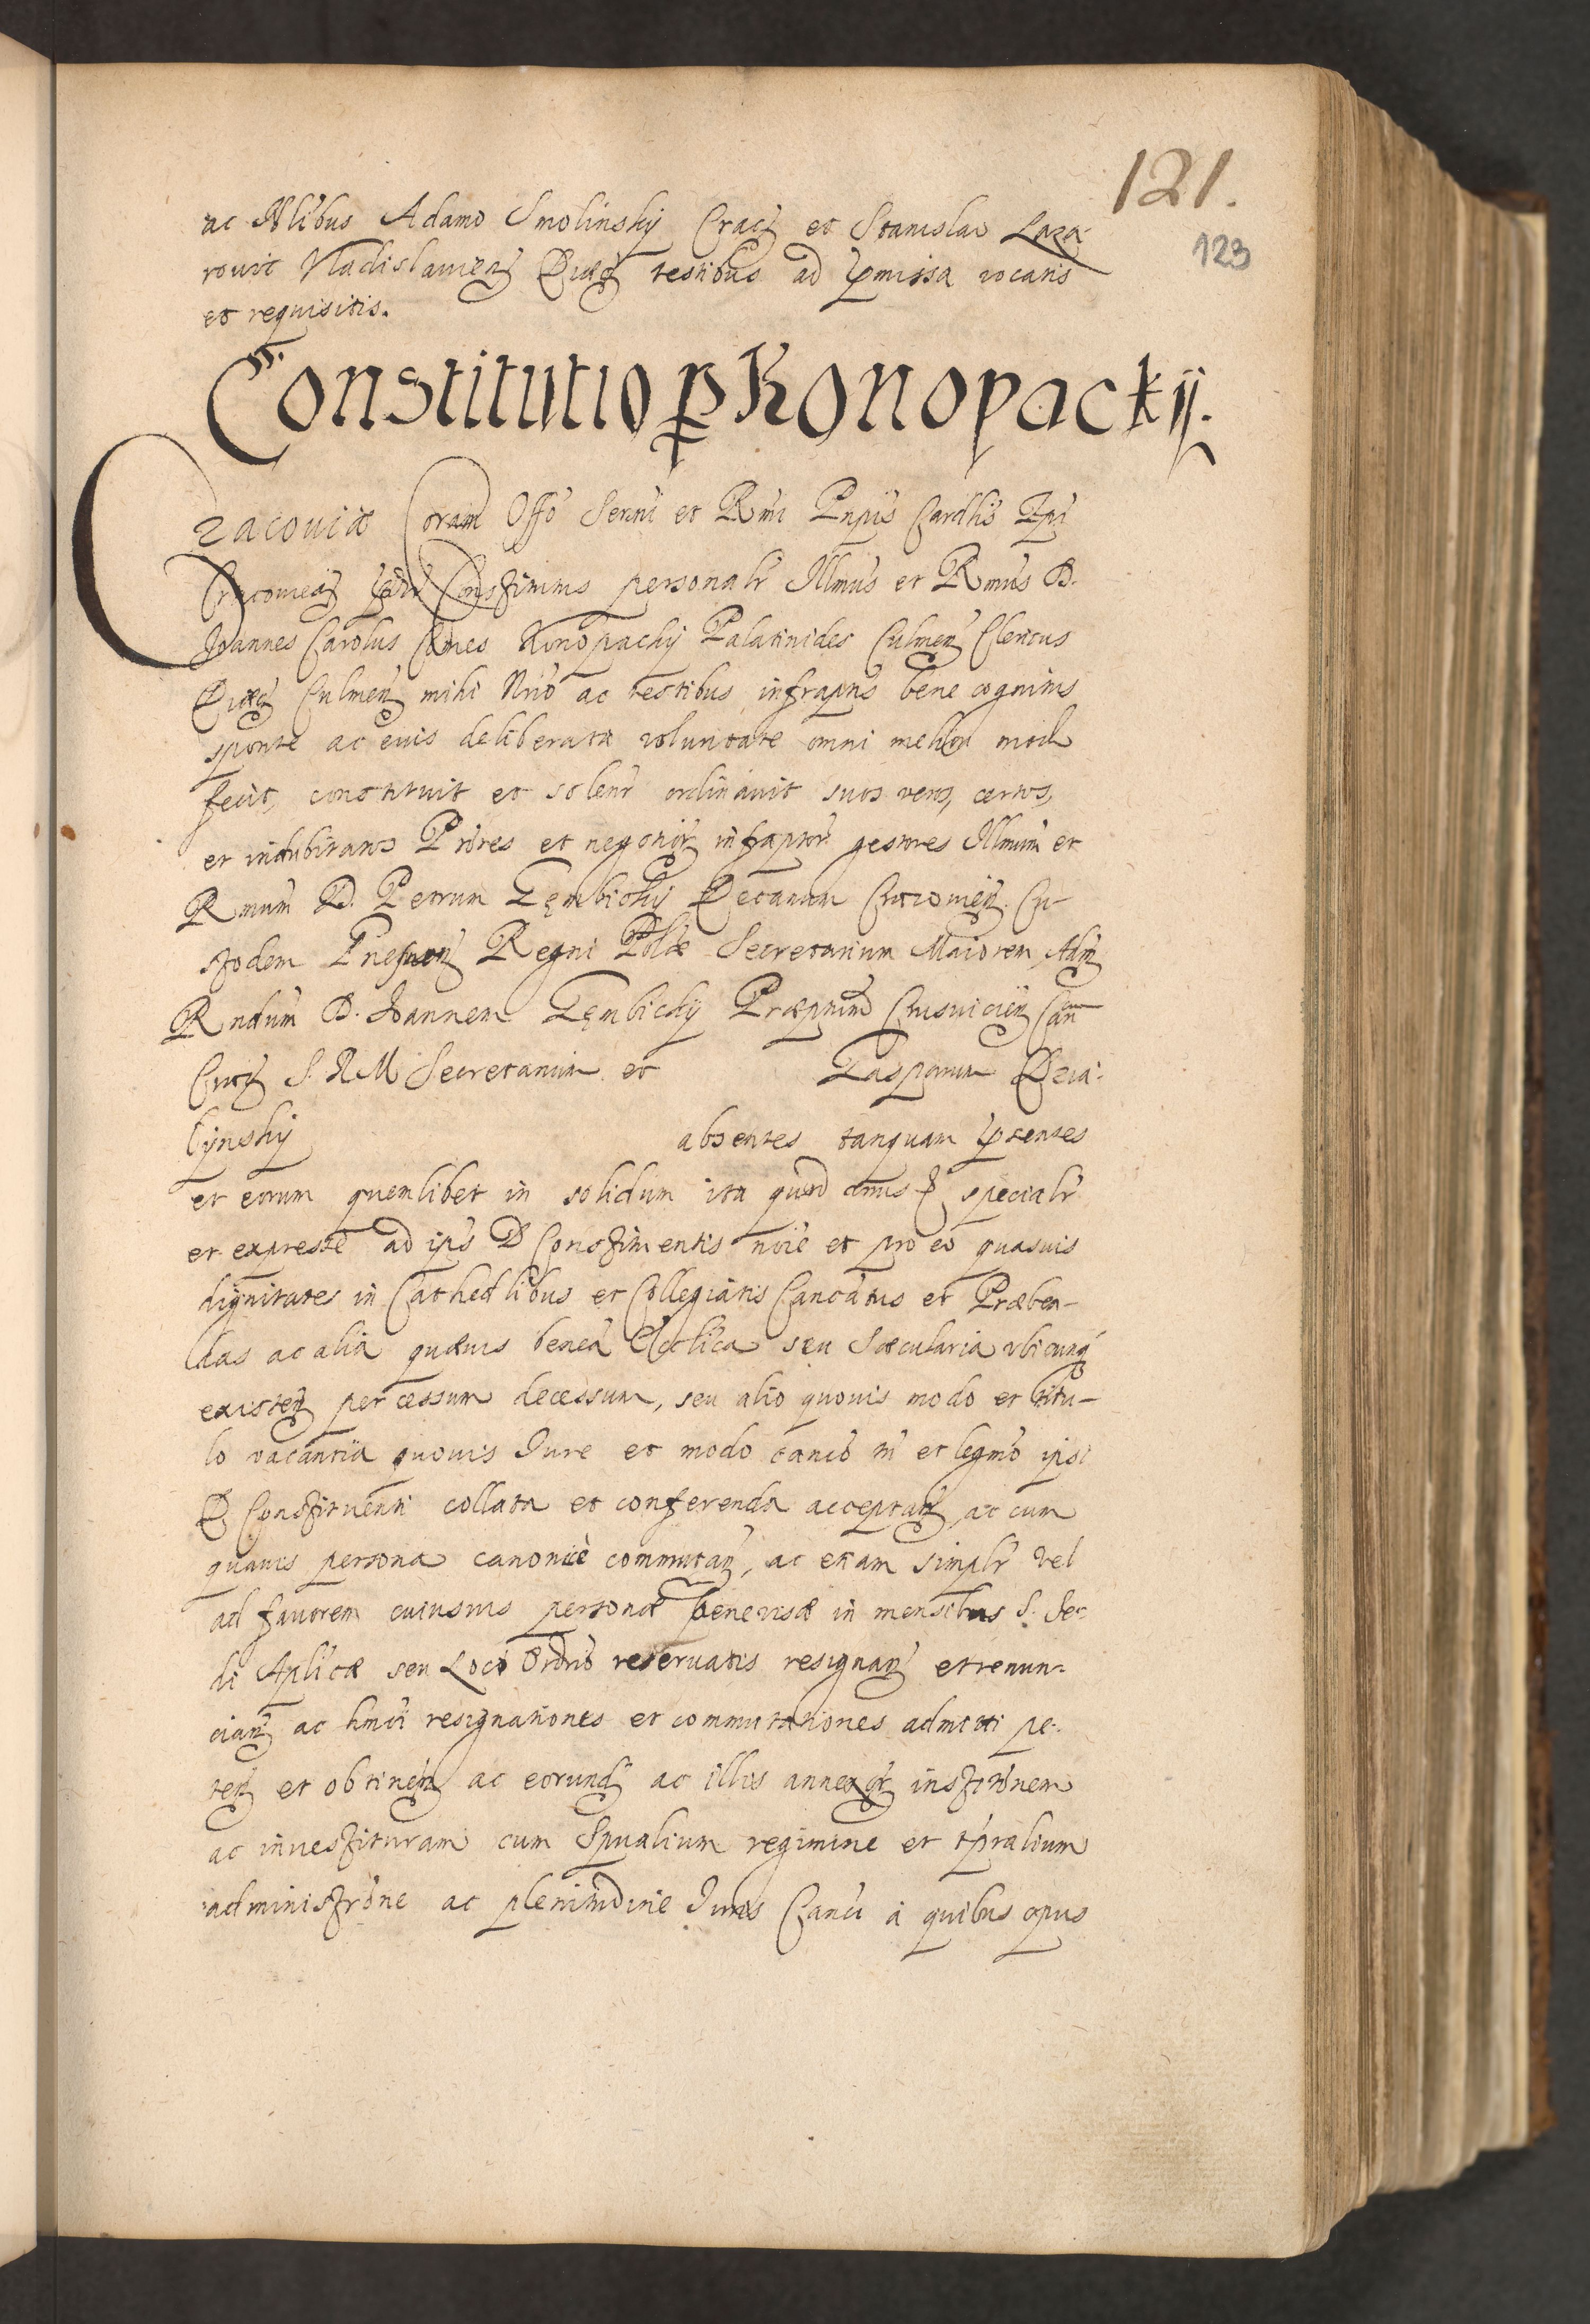 121.
123
ac Nlibus Adamo Smolinsky Crac et Stanislao Laza-
rouic Vladislauien Diæc testibus ad pmissa vocatis
et requisitis.
Constitutio p Konopackij.
Cracouiæ Coram Offo Sermi et Rmi Pnpis Cardlis Epi
Cracouien Constitutus personalr Illmus et Rmus D.
Joannes Carolus Comes Konopacky Palatinides Culmen Clericus
Diæc Culmen mihi Nrio ac testibus infrapns bene cognitus
sponte ac eius deliberata voluntate omni meliori modo
fecit, constituit et solenr ordinauit suos veros, certos,
et indubitatos Prores et negotior infraptor gestores Illmum et
Rmum D. Petrum Gembicky Decanum Cracouien Cu-
stodem Gnesnen Regni Polæ Secretarium Maiorem, Adm
Rndum D. Joannem Gembicky Præptum Crusuicien Can
Crac S. R M Secretarium et Gasparum Dzia-
lynsky absentes tanquam pæsentes
et eorum quemlibet in solidum ita quod specialr
et expresse ad ips D Constituentis noie et pro eo quasuis
dignitates in Cathedlibus et Collegiatis Canoatus et Præben-
das ac alia quæuis benea Ecclica seu Sæcularia vbicunq
existen per cessum decessum, seu alio quouis modo et titu-
lo vacantia quouis Jure et modo canco tn et legmo ipsi
D Constituenti collata et conferenda acceptan ac cum
quauis persona canonicè commutan, ac etiam simplr vel
ad fauorem cuiusuis personæ beneuisæ in mensibus S. Se-
di Aplicæ seu Loci Ordrio reseruatis resignan et renun-
cian ac hmoi resignationes et commutationes admitti pe-
ten et obtinen ac eorund ac illis annexor institonem
ac inuestituram cum Spualium regimine et tpralium
administrone ac plenitudine Juris Canci à quibus opus